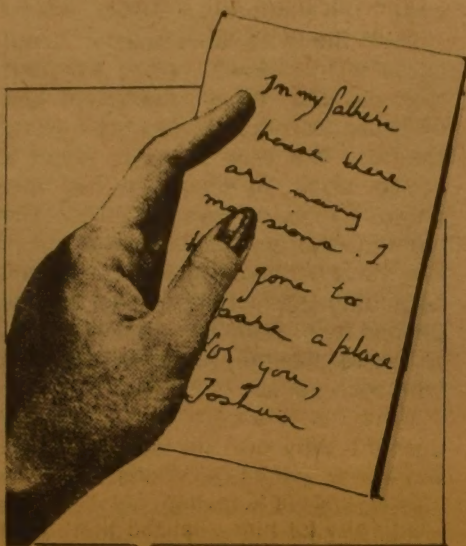 In my father's
house there
are many
sions. I
gone to
pare a place
for you,
Joshua